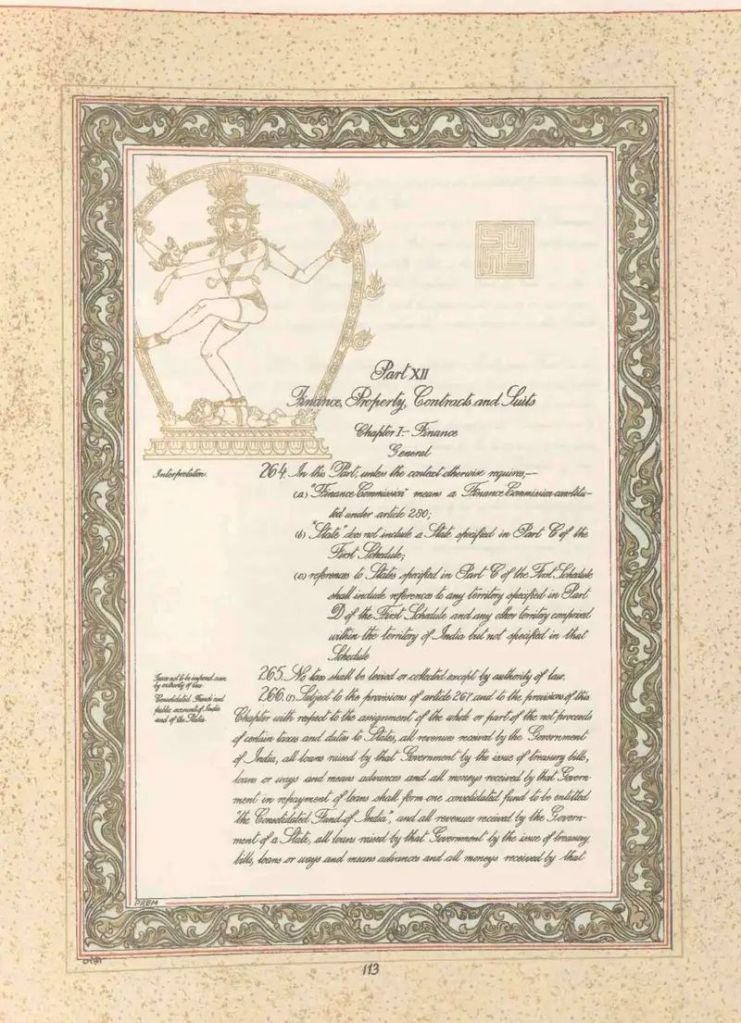 Part XII
Finance, Property, Contracts and Suits
Chapter I.- Finance
General
Interpretation.
264. In this Part, unless the context otherwise requires,—
(a) "Finance Commission" means a Finance Commission constitu-
ted under article 280;
(b) "State" does not include a State specified in Part C of the
First Schedule;
(c) references to States specified in Part C of the First Schedule
shall include references to any territory specified in Part
D of the First Schedule and any other territory comprised
within the territory of India but not specified in that
Schedule
Taxes not to be imposed save
by authority of law.
265. No tax shall be levied or collected except by authority of law.
Consolidated Funds and
public accounts of India
and of the States.
266. (1) Subject to the provisions of article 267 and to the provisions of this
Chapter with respect to the assignment of the whole or part of the net proceeds
of certain taxes and duties to States, all revenues received by the Government
of India, all loans raised by that Government by the issue of treasury bills,
loans or ways and means advances and all moneys received by that Govern-
ment in repayment of loans shall form one consolidated fund to be entitled
"the Consolidated Fund of India", and all revenues received by the Govern-
ment of a State, all loans raised by that Government by the issue of treasury
bills, loans or ways and means advances and all moneys received by that
PREM
113